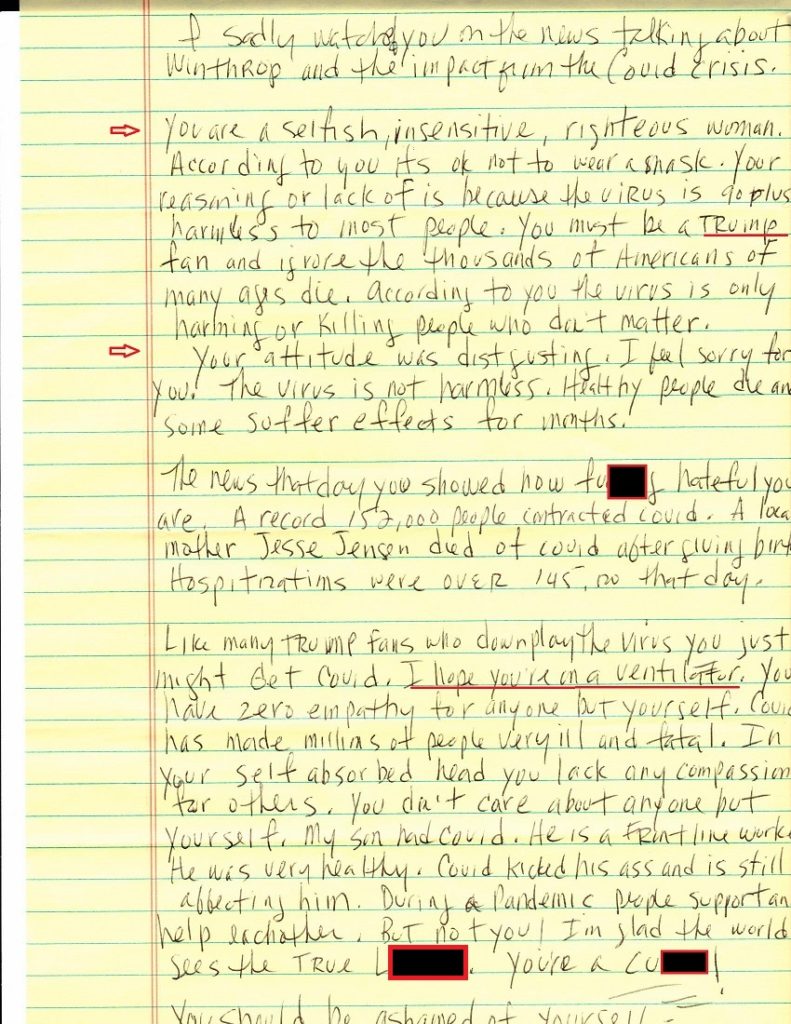 I sadly watched you on the news talking about
Winthrop and the impact from the Covid Crisis.
You are a selfish, insensitive, righteous woman.
According to you its ok not to wear a mask. Your
reasoning or lack of is because the virus is 90 plus
harmless to most people. You must be a TRump
fan and ignore the thousands of Americans of
many ages die. According to you the virus is only
harming or killing people who don't matter.
Your attitude was distgusting. I feel sorry for
you! The virus is not harmless. Healthy people die an
some suffer effects for months.
The news that day you showed how fu g hateful you
are. A record 152,000 people contracted covid. A loca
mother Jesse Jensen died of covid after giving birt
Hospitizatims were over 145,00 that day.
Like many TRUMP fans who downplay the virus you just
might Get Covid. I hope you're on a ventilator. You
have zero empathy for anyone but yourself. Covid
has made millions of people very ill and fatal. In
your self absorbed head you lack any compassion
for others. You don't care about anyone but
yourself. My son had Covid. He is a Frontline worke
He was very healthy. Covid kicked his ass and is still
affecting him. During a Pandemic people support an
help eachother. But not you! I'm glad the world
sees the TRUE L . You're a Cu !
You should be ashamed of yourself